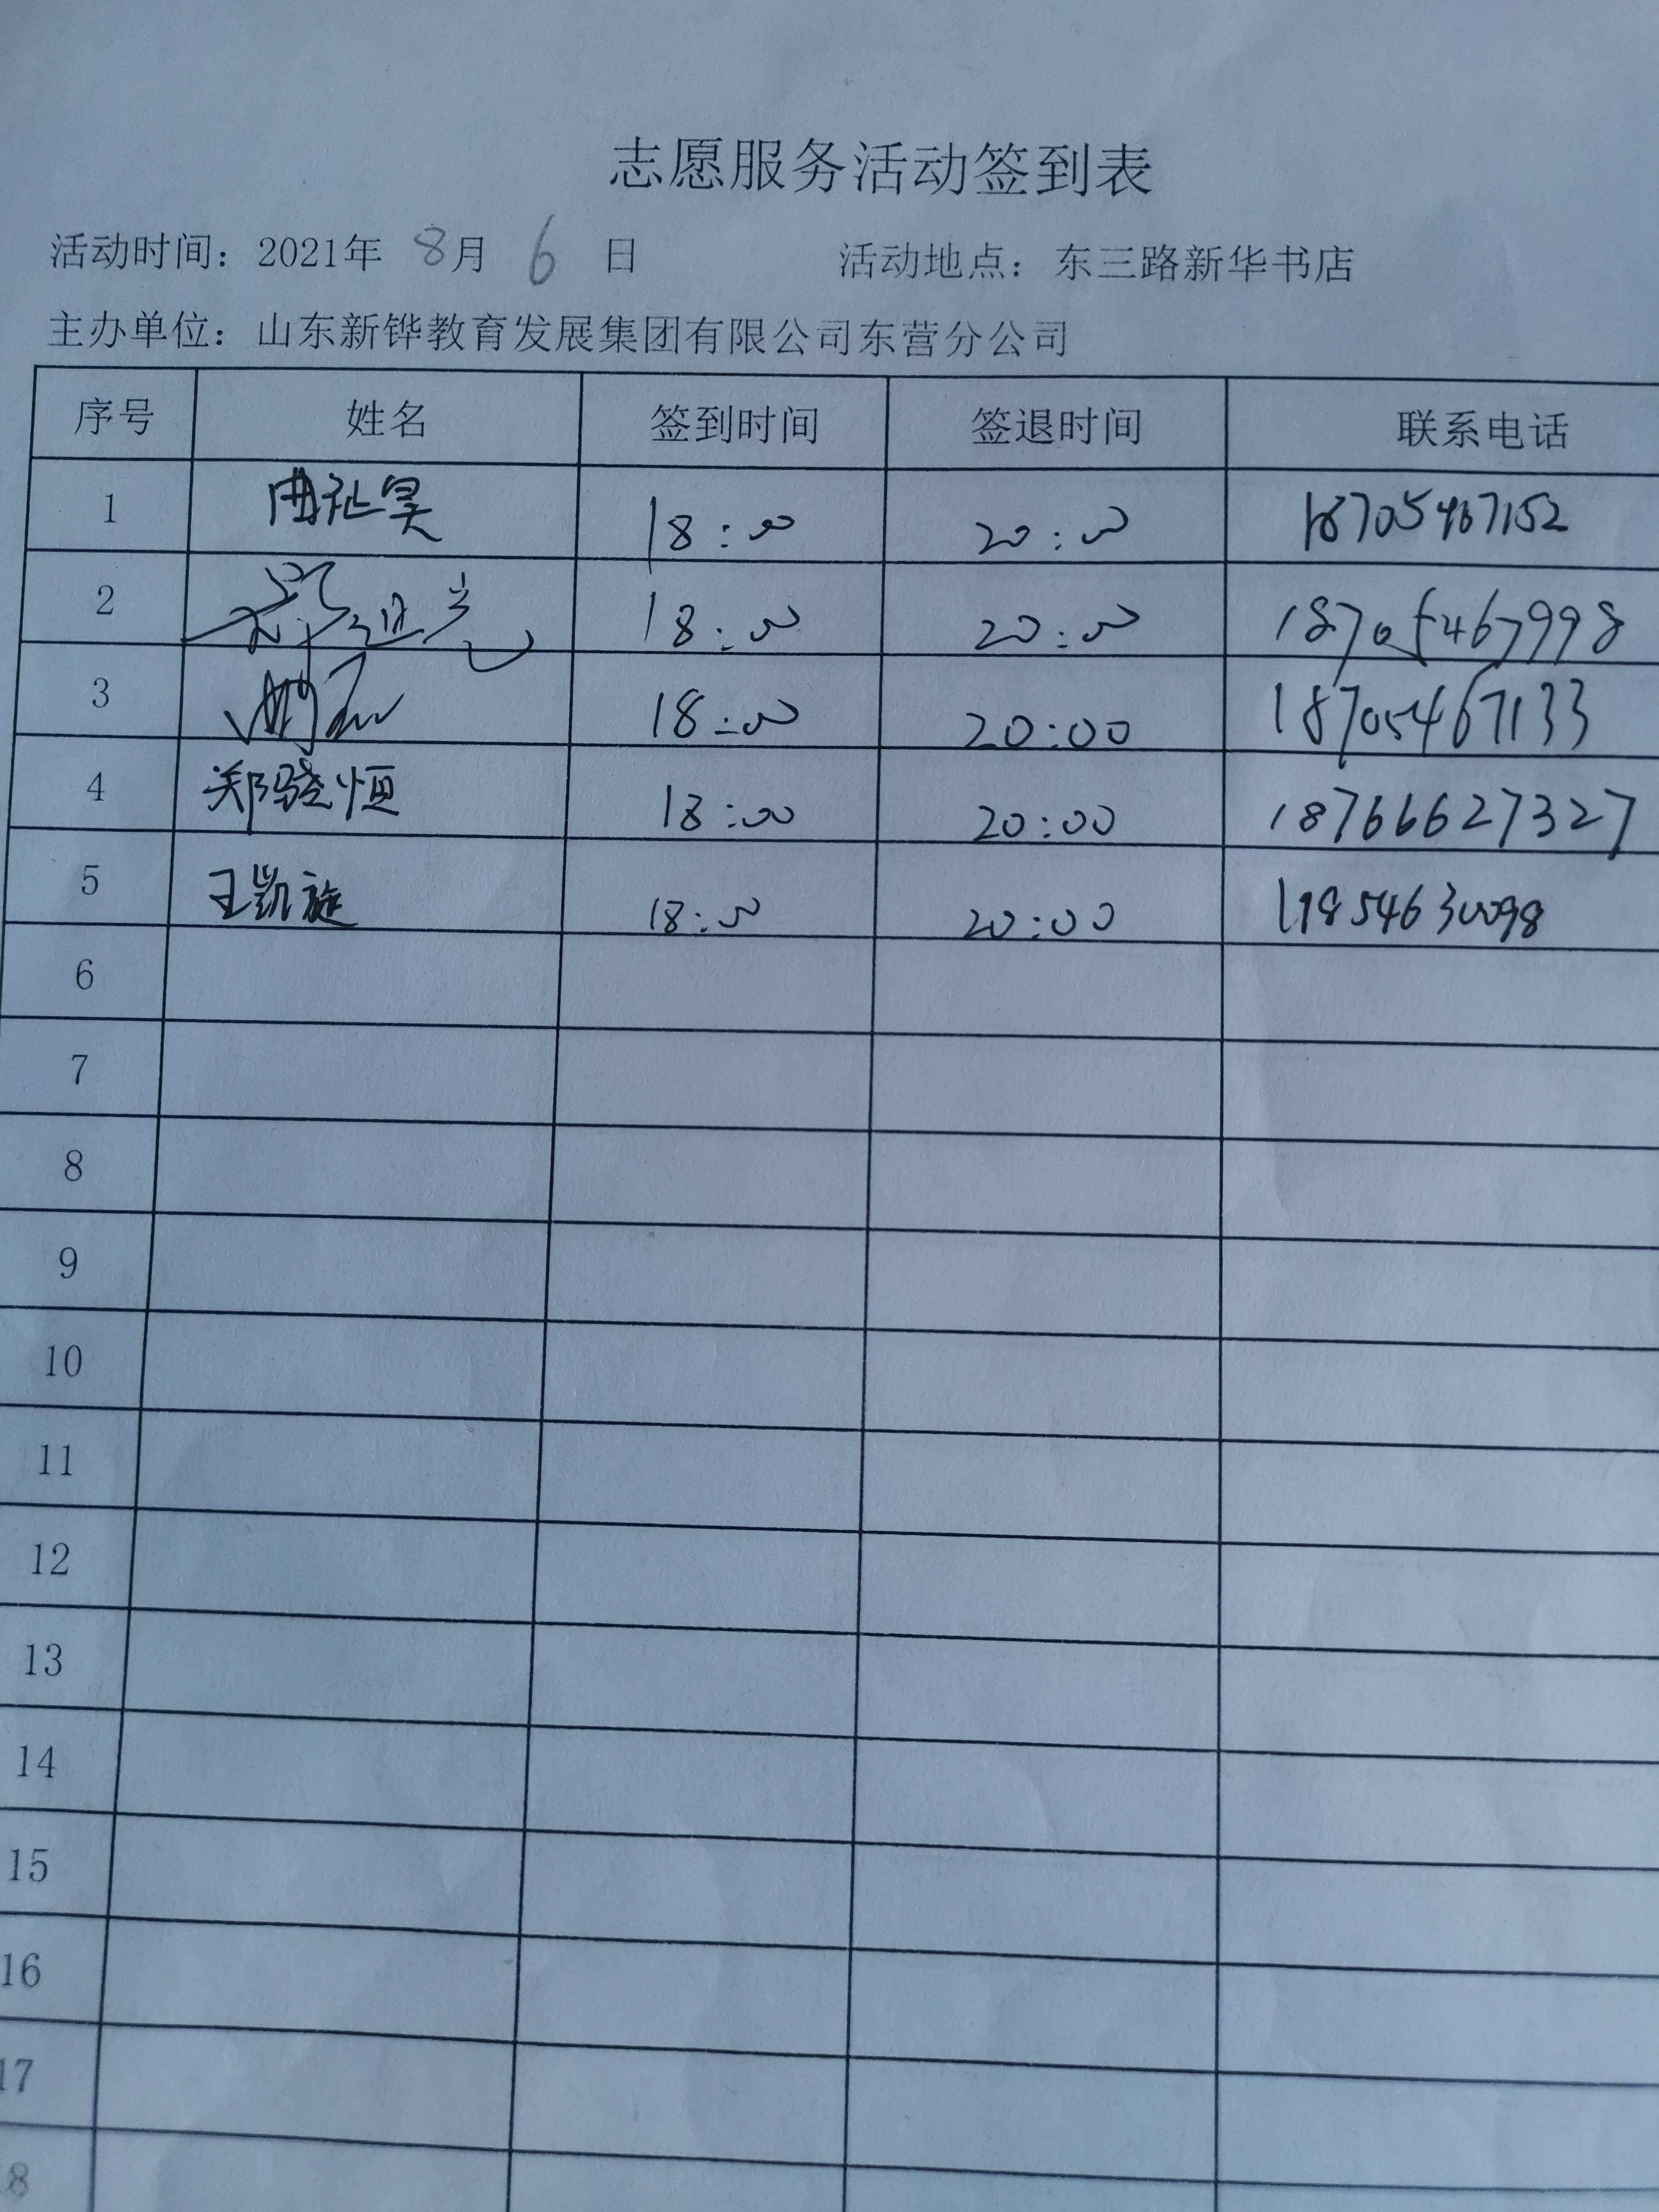 志愿服务活动签到表
活动时间：2021年 8月 6 日 活动地点：东三路新华书店
主办单位：山东新铧教育发展集团有限公司东营分公司
序号 姓名 签到时间 签退时间 联系电话
1 曲祉昊 18:00 20:00 18705467152
2 18:00 20:00 18705467998
3 18:00 20:00 18705467133
4 郑骁恒 18:00 20:00 18766627327
5 王凯旋 18:00 20:00 19854630098
6
7
8
9
10
11
12
13
14
15
16
17
18